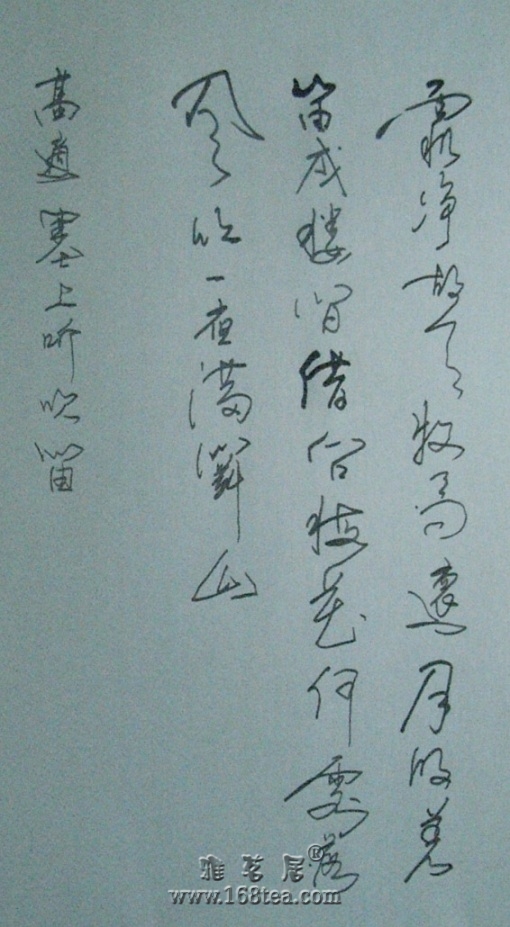 雪净胡天牧馬還月明羌
笛戍樓間借問梅花何處落
風吹一夜滿關山
高適塞上听吹笛
雅茗居®
www.168tea.com